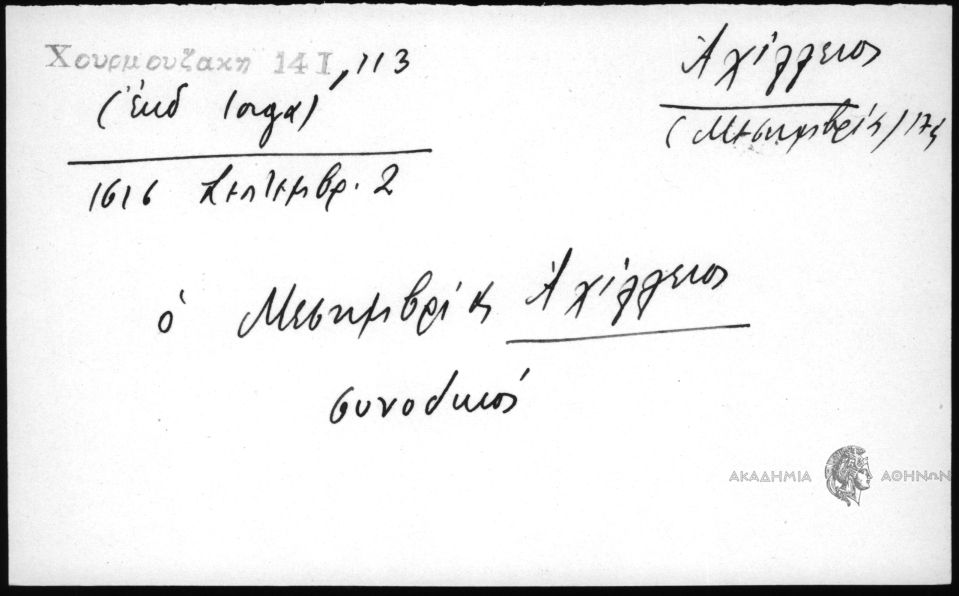 Χουρμουζακη 14 I, 113
(ἐκδ Iorga)
1616 Σεπτεμβρ. 2
Ἀχίλλειος
(Μεσημβρίας) 17ς
ὁ Μεσημβρίας Ἀχίλλειος
συνοδικός
ΑΚΑΔΗΜΙΑ ΑΘΗΝΩΝ